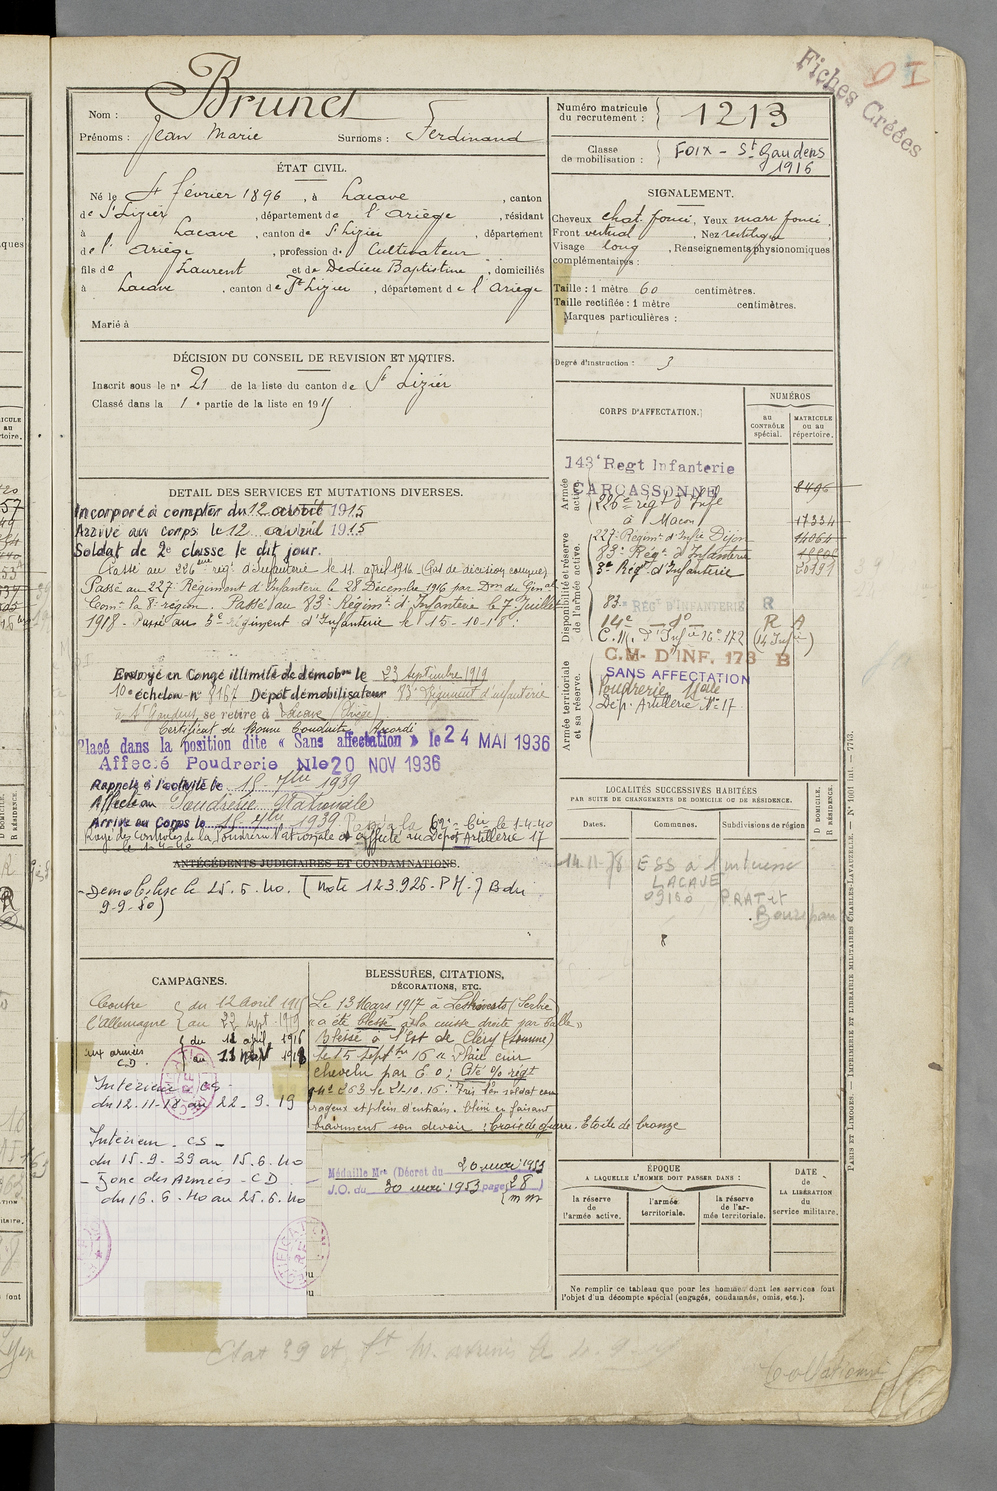 Fiches Créées
D I
Nom : Brunet
Prénoms : Jean Marie Surnoms : Ferdinand
Numéro matricule du recrutement : 1213
Classe de mobilisation : Foix - St Gaudens
1916
ÉTAT CIVIL.
Né le 4 février 1896, à Lacave, canton
de St Lizier, département de l'Ariège, résidant
à Lacave, canton de St Lizier, département
de l'Ariège, profession de Cultivateur
fils de Laurent et de Dedieu Baptistine, domiciliés
à Lacave, canton de St Lizier, département de l'Ariège
Marié à
SIGNALEMENT.
Cheveux chat. foncé, Yeux marr foncé.
Front vertical, Nez rectiligne
Visage long, Renseignements physionomiques
complémentaires :
Taille : 1 mètre 60 centimètres.
Taille rectifiée : 1 mètre centimètres.
Marques particulières :
Degré d'instruction : 3
DÉCISION DU CONSEIL DE REVISION ET MOTIFS.
Inscrit sous le nº 21 de la liste du canton de St Lizier
Classé dans la 1e partie de la liste en 1915
CORPS D'AFFECTATION.
NUMÉROS
au CONTRÔLE spécial.
MATRICULE ou au répertoire.
Armée active.
143e Regt Infanterie
CARCASSONNE 8496
226e régt d'Infie
à Macon 17334
Disponibilité et réserve de l'armée active.
227e Régimt d'Infie Dijon 14064
83e Régt d'Infanterie
3e Régt d'Infanterie 20191
83e RÉGT D'INFANTERIE R
14e - d° - R A
C.M. d'Infie 16e 172 (14 Infie)
C.M. D'INF. 173 B
SANS AFFECTATION
Armée territoriale et sa réserve.
Poudrerie Nale
Dép. Artillerie N° 17
DETAIL DES SERVICES ET MUTATIONS DIVERSES.
Incorporé à compter du 12 avril 1915
Arrivé au corps le 12 avril 1915
Soldat de 2e classe le dit jour.
Passé au 226eme rég. d'Infanterie le 11 avril 1916
Passé au 227e Régiment d'Infanterie le 28 Décembre 1916 par Don du Génal
Comt la 8e région. Passé au 83e Régimt d'Infanterie le 7 Juillet
1918 - Passé au 3e Régiment d'Infanterie le 15-10-18.
Envoyé en Congé illimité de démobon le 23 septembre 1919
10e échelon nº 8167 Dépôt démobilisateur 83e Régiment d'infanterie
à St Gaudens, se retire à Lacave (Ariège)
Certificat de Bonne Conduite Accordé
Placé dans la position dite « Sans affectation » le 24 MAI 1936
Affecté Poudrerie N le 20 NOV 1936
Rappelé à l'activité le 15 7bre 1939
Affecté au Poudrerie Nationale
Arrivé au Corps le 15 7bre 1939 Passé à la 62e Bie le 1-4-40
Rayé des contrôles de la Poudrerie Nationale et affecté au Dépôt Artillerie 17
le 1-4-40
ANTÉCÉDENTS JUDICIAIRES ET CONDAMNATIONS.
- Démobilisé le 25.5.40. (note 123.925-PM-7 Bdri
9-9-50)
LOCALITÉS SUCCESSIVES HABITÉES
PAR SUITE DE CHANGEMENTS DE DOMICILE OU DE RÉSIDENCE.
Dates. Communes. Subdivisions de région D DOMICILE. R RÉSIDENCE.
14-11-78 ESS à l'intéressé
LACAVE
09160 PRAT et
Bonrepaux
CAMPAGNES.
Contre l'Allemagne du 12 avril 1915
au 22 sept 1919
aux armées C.D. du 11 april 1916
au 11 nov 1918
Intérieur CS -
du 12-11-18 au 22-9-19
Intérieur - CS -
du 15-9-39 au 15.6.40
- Zone des Armées - CD
du 16.6.40 au 25.6.40
BLESSURES, CITATIONS,
DÉCORATIONS, ETC.
Le 13 Mars 1917 à (Serbie)
« a été blessé à la cuisse droite par balle »
Blessé à l'Est de Cléry (Somme)
le 15 septbre 16 « Plaie cuir
chevelu par E O ; Cité O/ régt
nº 263 le 21.10.16. Très bon soldat cou
rageux et plein d'entrain. Blessé en faisant
bravement son devoir ; Croix de guerre. Etoile de bronze
Médaille Mre (Décret du 20 mai 1953
J.O. du 30 mai 1953 page (28)
(m m)
ÉPOQUE
A LAQUELLE L'HOMME DOIT PASSER DANS :
la réserve de l'armée active.
l'armée territoriale.
la réserve de l'armée territoriale.
DATE de LA LIBÉRATION du service militaire.
Ne remplir ce tableau que pour les hommes dont les services font
l'objet d'un décompte spécial (engagés, condamnés, omis, etc.).
PARIS ET LIMOGES. — IMPRIMERIE ET LIBRAIRIE MILITAIRES CHARLES-LAVAUZELLE. — Nº 1001 int. — 7713.
Collationné